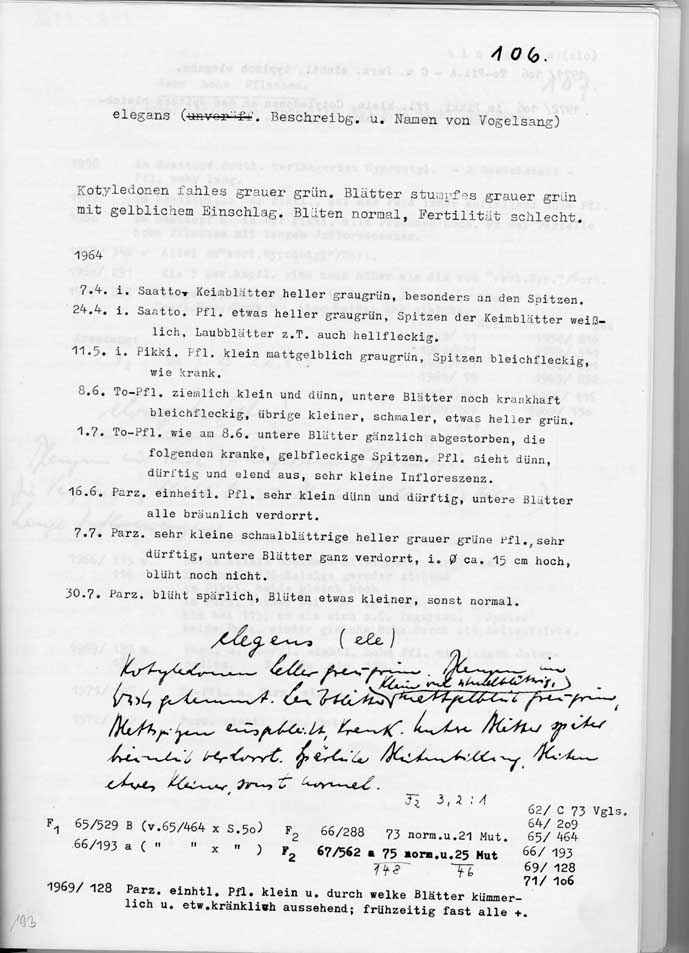 106.
elegans (unveröff. Beschreibg. u. Namen von Vogelsang)
Kotyledonen fahles grauer grün. Blätter stumpfes grauer grün
mit gelblichem Einschlag. Blüten normal, Fertilität schlecht.
1964
7.4. i. Saatto. Keimblätter heller graugrün, besonders an den Spitzen.
24.4. i. Saatto. Pfl. etwas heller grün, Spitzen der Keimblätter weiß-
lich, Laubblätter z.T. auch hellfleckig.
11.5. i. Pikki. Pfl. klein mattgelblich graugrün, Spitzen bleichfleckig,
wie krank.
8.6. To-Pfl. ziemlich klein und dünn, untere Blätter noch krankhaft
bleichfleckig, übrige kleiner, schmaler, etwas heller grün.
1.7. To-Pfl. wie am 8.6. untere Blätter gänzlich abgestorben, die
folgenden kranke, gelbfleckige Spitzen. Pfl. sieht dünn,
dürftig und elend aus, sehr kleine Infloreszenz.
16.6. Parz. einheitl. Pfl. sehr klein dünn und dürftig, untere Blätter
alle bräunlich verdorrt.
7.7. Parz. sehr kleine schmalblättrige heller grauer grüne Pfl., sehr
dürftig, untere Blätter ganz verdorrt, i. Ø ca. 15 cm hoch,
blüht noch nicht.
30.7. Parz. blüht spärlich, Blüten etwas kleiner, sonst normal.
elegans (ele)
Kotyledonen heller graugrün. Pflanzen im
Klein und schmalblättrig.
Wuchs gehemmt. Laubblätter mattgelblich graugrün,
Blattspitzen ausgebleicht, krank. Untere Blätter später
bräunlich verdorrt. Spärliche Blütenbildung, Blüten
etwas kleiner, sonst normal.
F2 3,2 : 1
62/ C 73 Vgls.
64/ 209
F1 65/529 B (v.65/464 x S.50) F2 66/288 73 norm.u.21 Mut. 65/ 464
66/193 a ( " " x " ) F2 67/562 a 75 norm.u.25 Mut 66/ 193
148 46 69/ 128
71/ 106
1969/ 128 Parz. einhtl. Pfl. klein u. durch welke Blätter kümmer-
lich u. etw.kränklich aussehend; frühzeitig fast alle +.
193